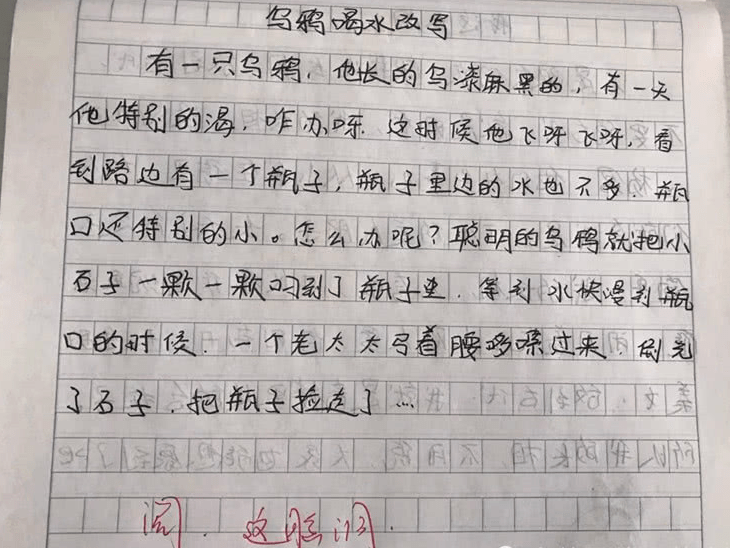 乌鸦喝水改写
有一只乌鸦，他长的乌漆麻黑的，有一天
他特别的渴，咋办呀.这时候他飞呀飞呀，看
到路边有一个瓶子，瓶子里边的水也不多.瓶
口还特别的小。怎么办呢？聪明的乌鸦就把小
石子一颗一颗叼到了瓶子里.等到水快漫到瓶
口的时候.一个老太太弓着腰哆嗦过来.倒光
了石子.把瓶子捡走了…
阅.